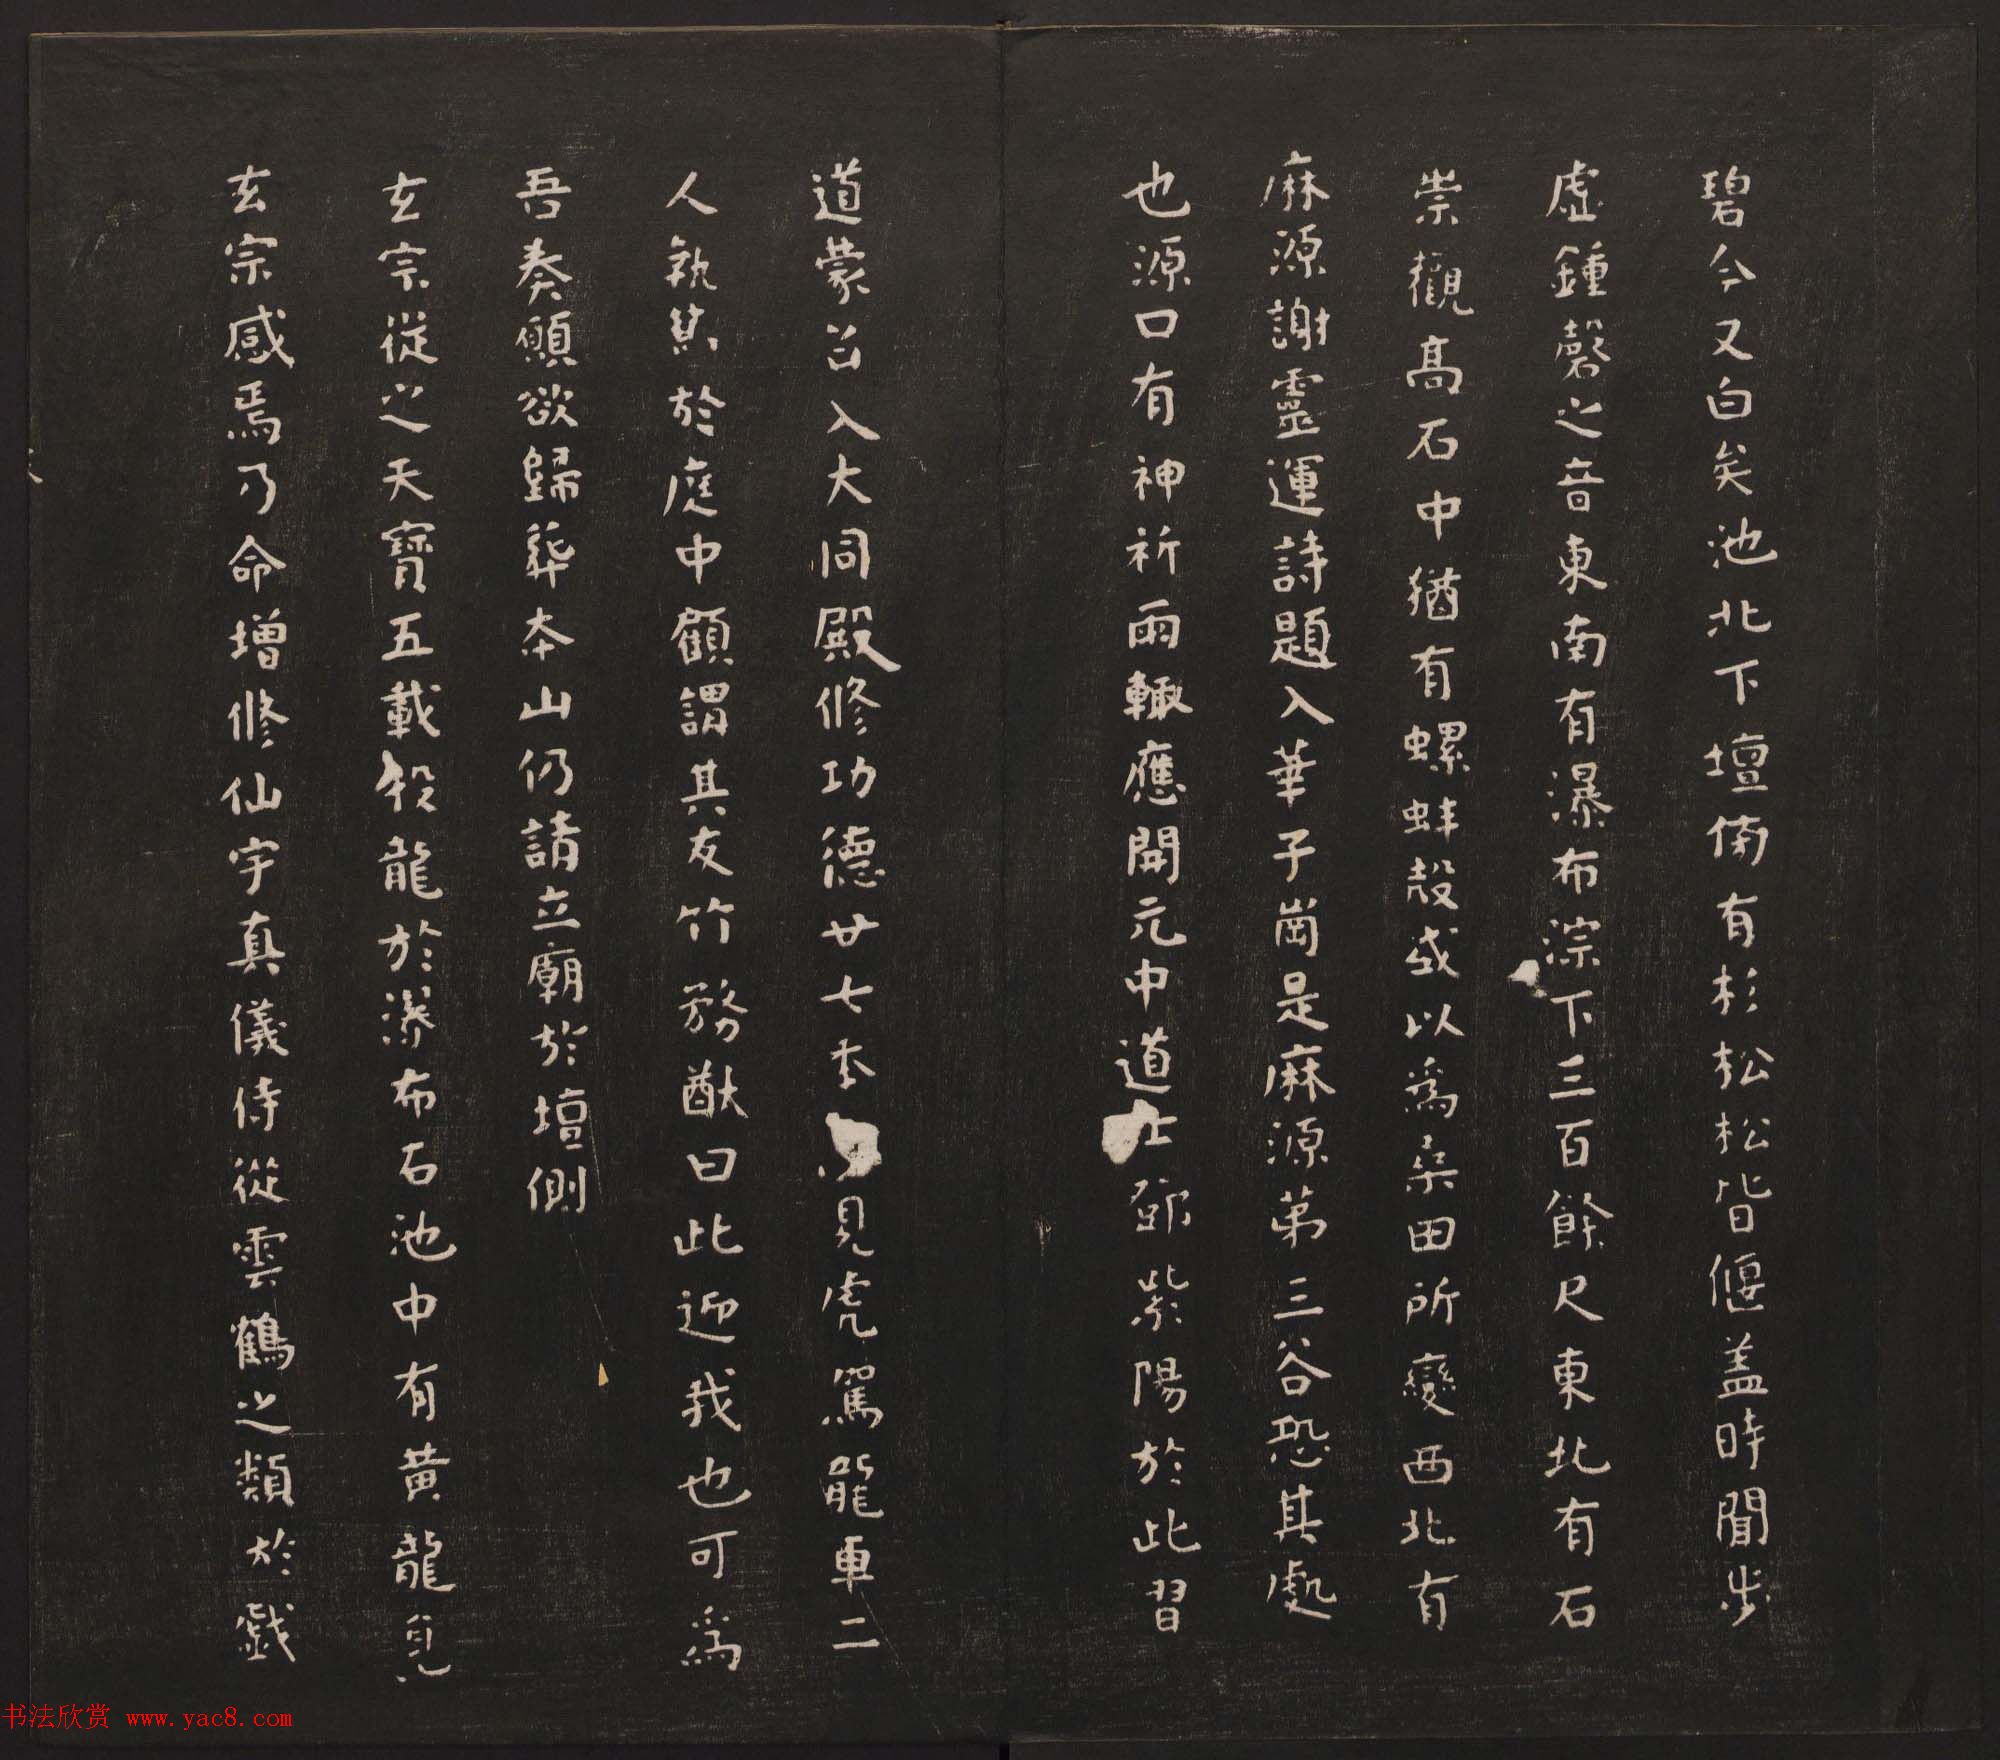 碧今又白矣池北下壇傍有杉松松皆偃盖時聞步
虛鍾磬之音東南有瀑布淙下三百餘尺東北有石
崇觀高石中猶有螺蚌殼或以為桑田所變西北有
麻源謝靈運詩題入華子崗是麻源第三谷恐其處
也源口有神祈雨輙應開元中道士鄧紫陽於此習
道蒙召入大同殿修功德廿七年忽見虎駕龍車二
人執節於庭中顧謂其友竹務猷曰此迎我也可為
吾奏願欲歸葬本山仍請立廟於壇側
玄宗從之天寶五載投龍於瀑布石池中有黃龍見
玄宗感焉乃命增修仙宇真儀侍從雲鶴之類於戲
书法欣赏 www.yac8.com